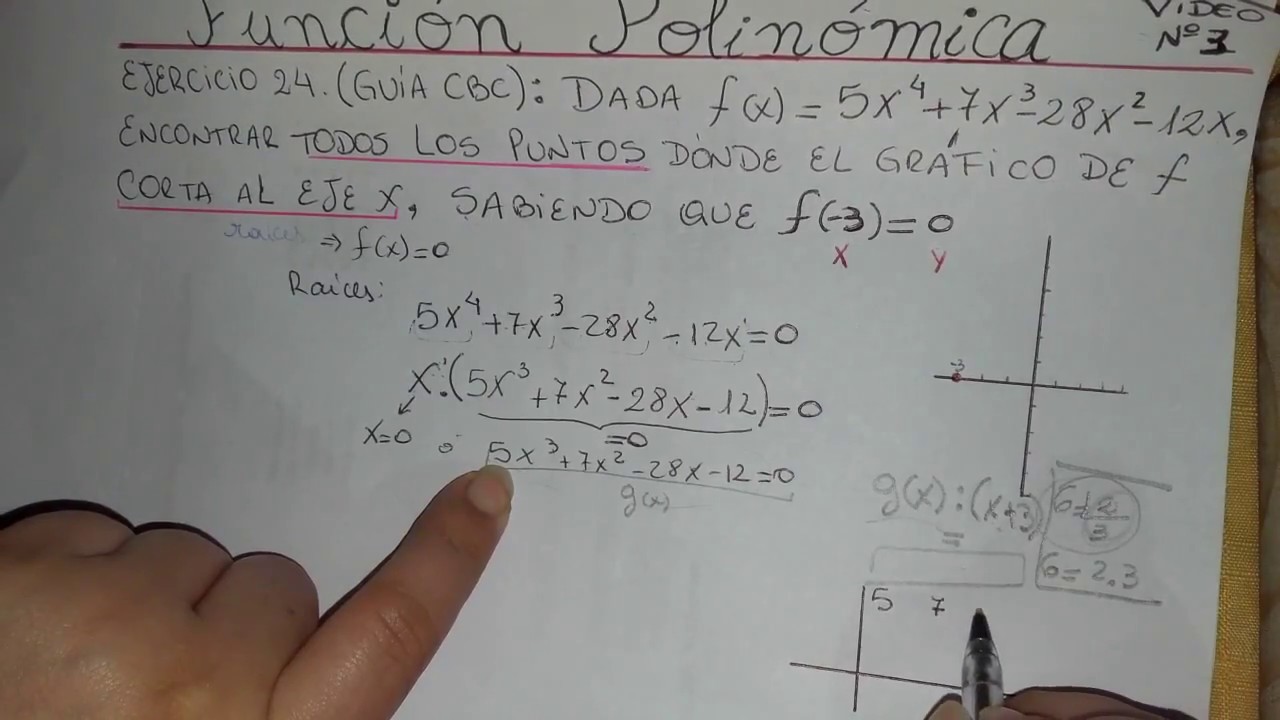 Función Polinómica
VIDEO
Nº 3
EJERCICIO 24. (GUÍA CBC): DADA f(x) = 5x⁴+7x³-28x²-12x,
ENCONTRAR TODOS LOS PUNTOS DÓNDE EL GRÁFICO DE f
CORTA AL EJE X, SABIENDO QUE f(-3)=0
x y
raíces ⇒ f(x)=0
Raíces:
5x⁴+7x³-28x²-12x=0
x.(5x³+7x²-28x-12)=0
=0
x=0 o 5x³+7x²-28x-12=0
g(x)
-3
g(x):(x+3)
=
6=2.3
5 7